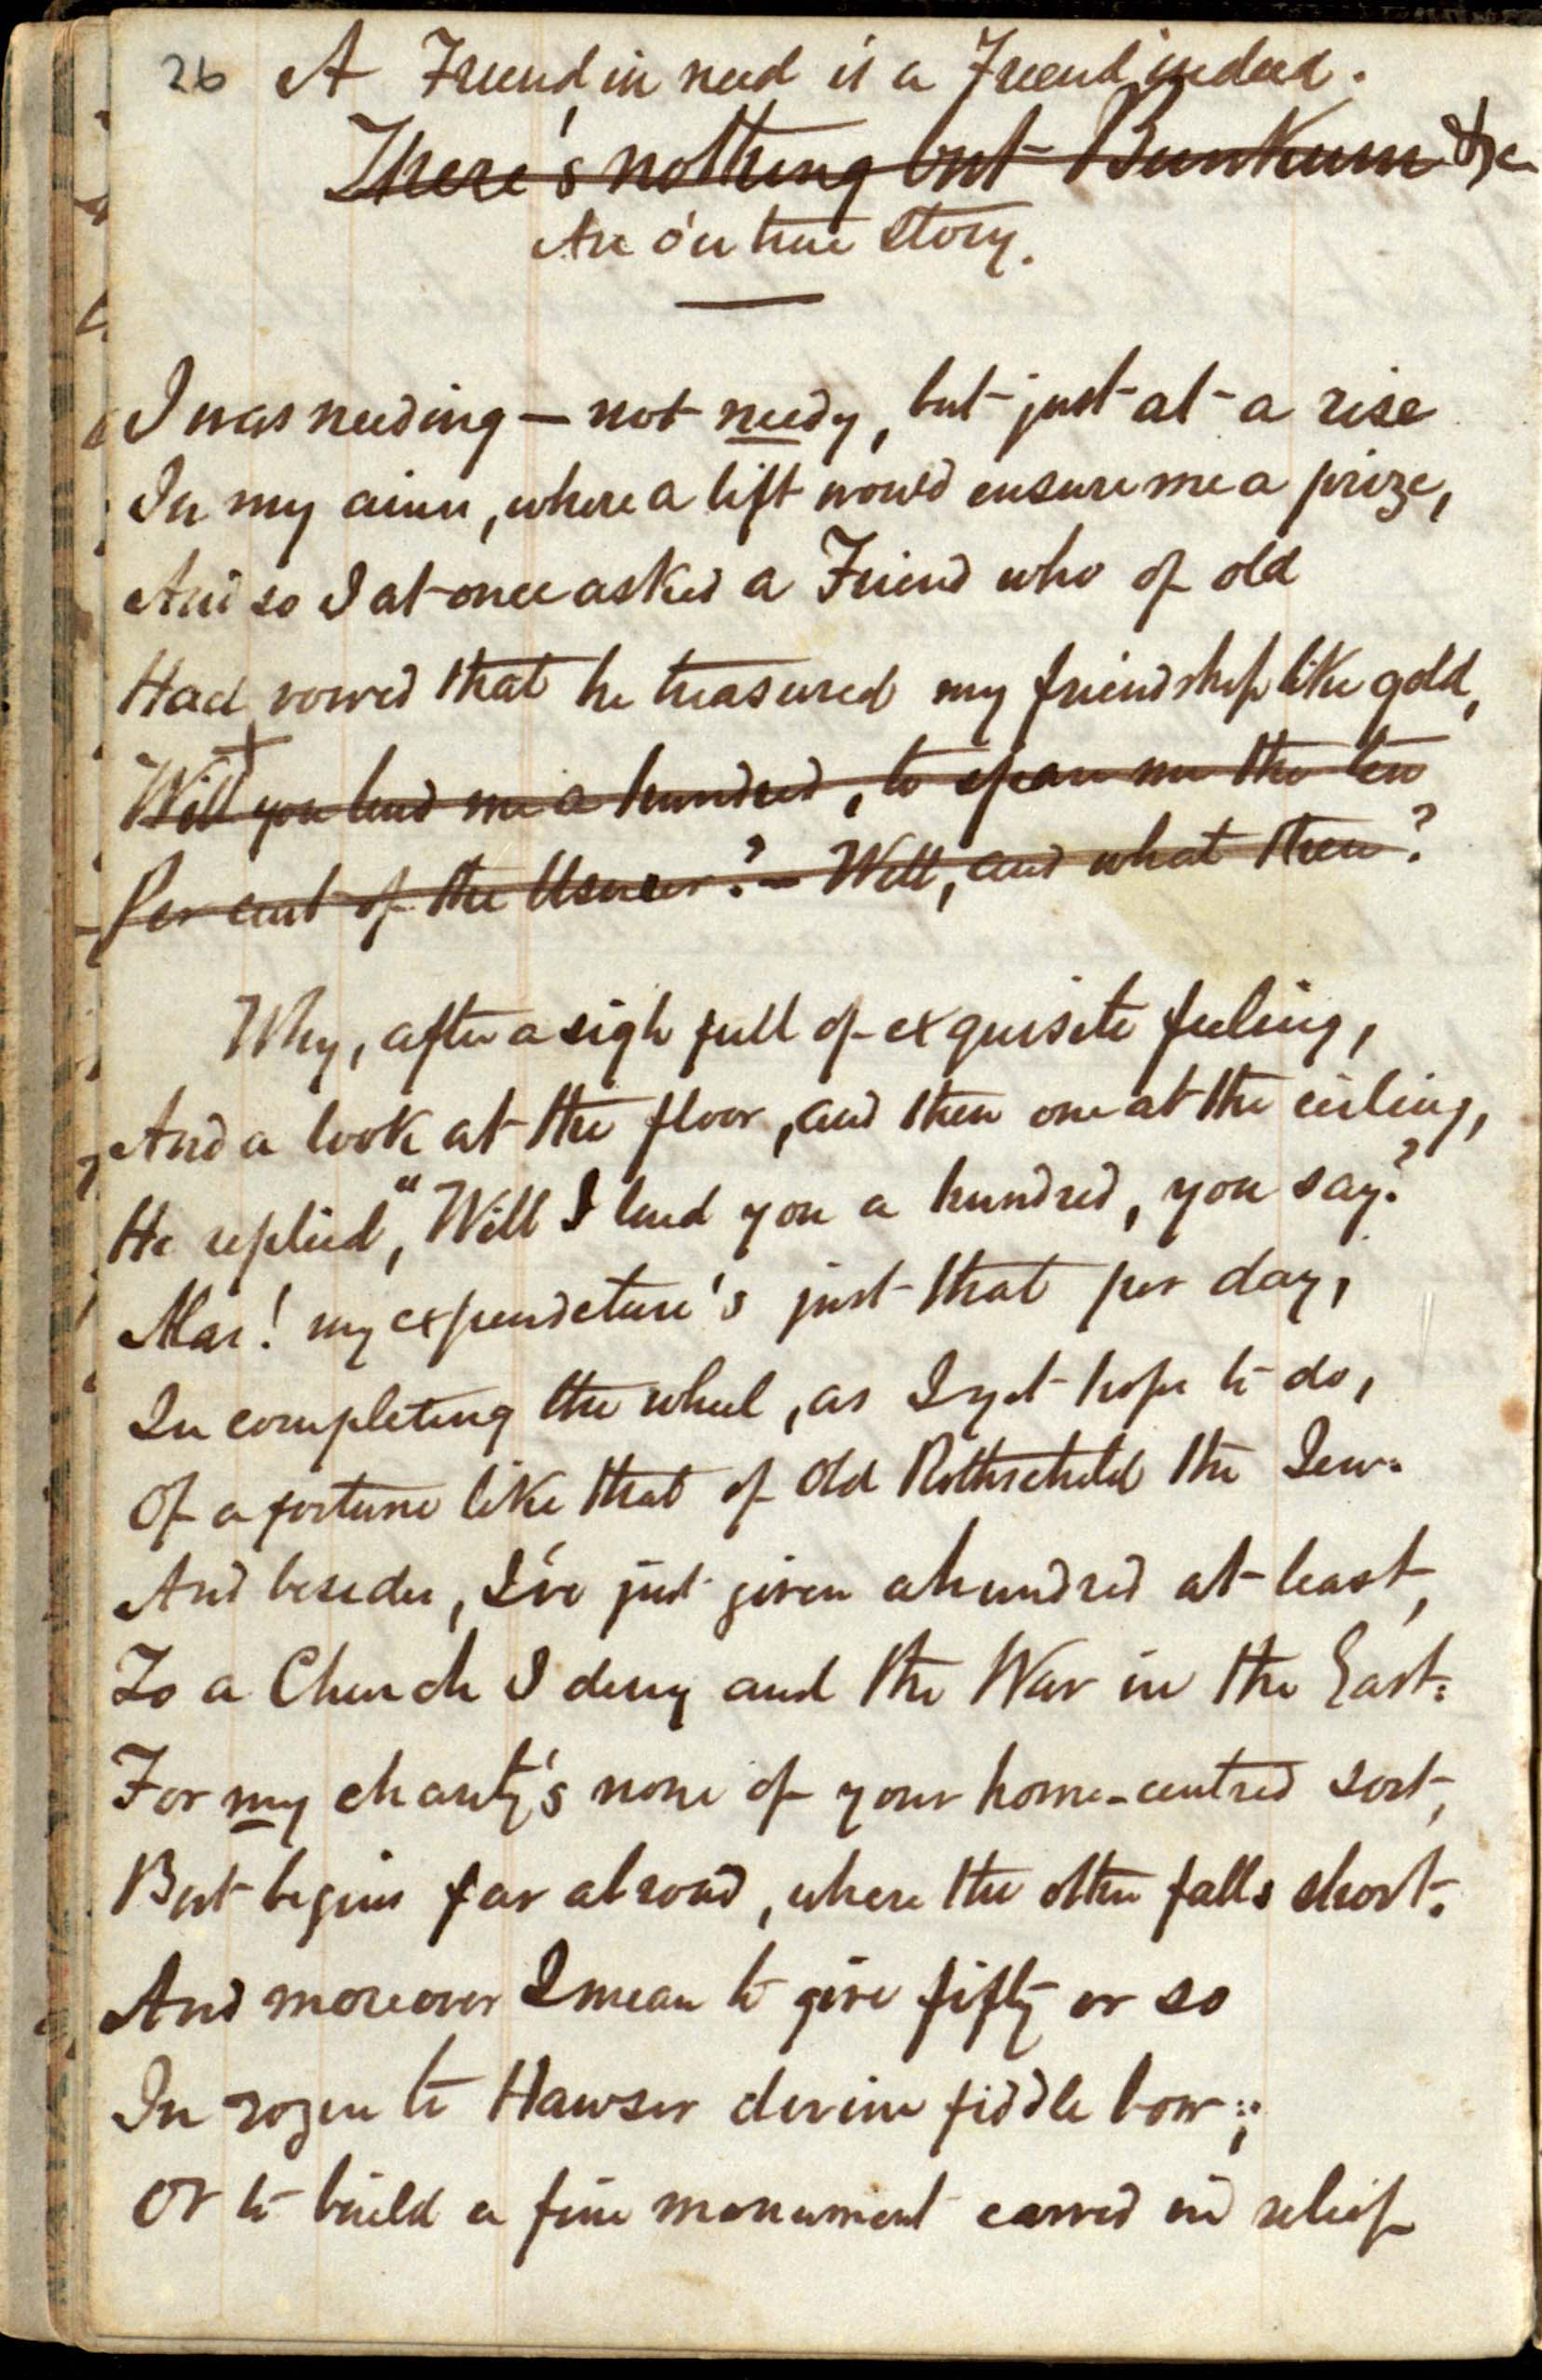 26 A Friend in need is a Friend indeed.
There's nothing but Bunkum &c
An o'er true Story.
I was needing — not needy, but just at a rise
In my aims, where a lift would ensure me a prize,
And so I at once asked a Friend who of old
Had vowed that he treasured my friendship like gold,
Will you lend me a hundred, to spare me the ten
Per cent of the Usurer? – Well, and what then?
Why, after a sigh full of exquisite feeling,
And a look at the floor, and then one at the ceiling,
He replied, "Will I lend you a hundred, you say?
Alas! my expenditure's just that per day,
In completing the wheel, as I yet hope to do,
Of a fortune like that of Old Rothschild the Jew.
And besides, I've just given a hundred at least,
To a Church I deny and the War in the East.
For my charity's none of your home-centred sort,
But begins far abroad, where the other falls short.
And moreover I mean to give fifty or so
In rozin to Hawser divine fiddle bow;
Or to build a fine monument carved in relief